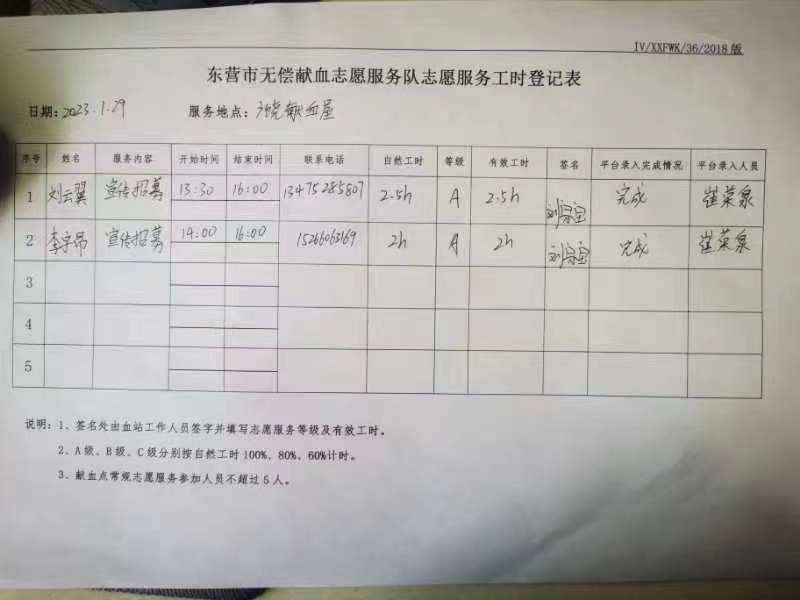 IV/XXFWK/36/2018版
东营市无偿献血志愿服务队志愿服务工时登记表
日期:2023.1.29 服务地点:饶献血屋
序号 姓名 服务内容 开始时间 结束时间 联系电话 自然工时 等级 有效工时 签名 平台录入完成情况 平台录入人员
1 刘云翼 宣传招募 13:30 16:00 13475285807 2.5h A 2.5h 完成 崔荣泉
2 李宇昂 宣传招募 14:00 16:00 15266063169 2h A 2h 完成 崔荣泉
3
4
5
说明:1、签名处由血站工作人员签字并填写志愿服务等级及有效工时。
2、A级、B级、C级分别按自然工时100%、80%、60%计时。
3、献血点常规志愿服务参加人员不超过5人。